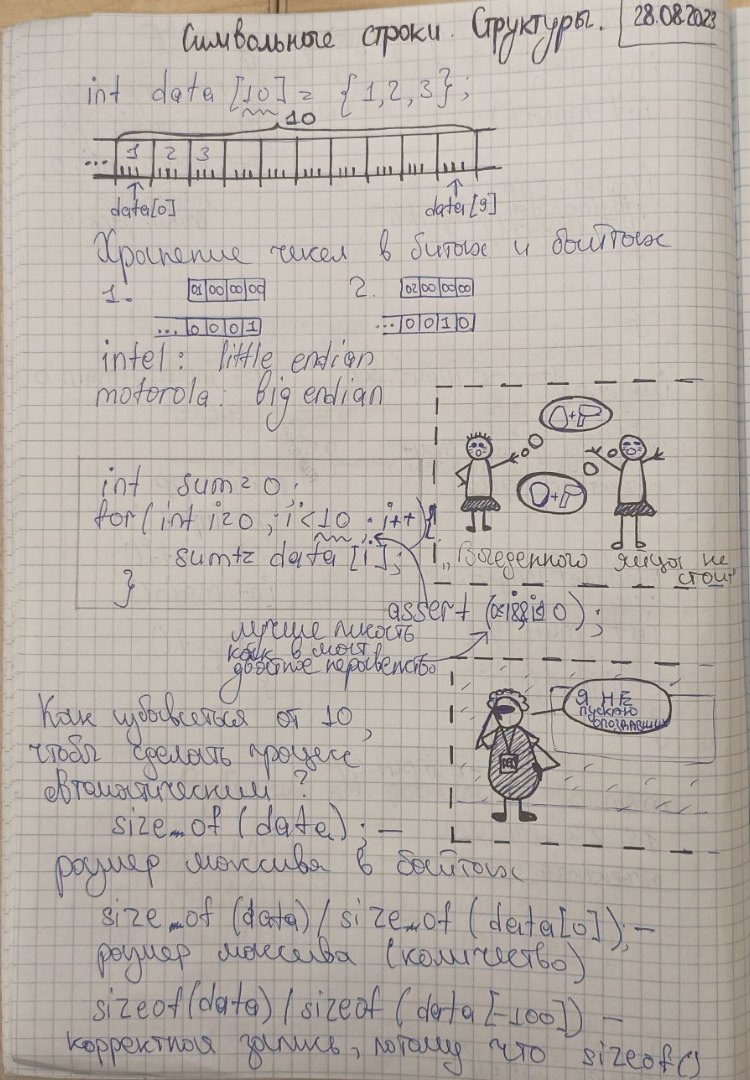 Символьные строки. Структуры.
28.08.2023
int data [10] = {1,2,3};
10
... 1 2 3
data[0] data[9]
Хранение чисел в битах и байтах
1. 01 00 00 00 2. 02 00 00 00
... 0 0 0 1 ... 0 0 1 0
intel: little endian
motorola: big endian
int sum = 0;
for (int i=0; i<10; i++) {
sum += data [i];
}
„Выеденного яйца не
стоит
assert (0≤i && i<10);
лучше писать
как в мат
двойное неравенство
Я НЕ
ПУСКАЮ
ОПОЗДАВШИХ
Как избавиться от 10,
чтобы сделать процесс
автоматическим?
size_of (data); —
размер массива в байтах
size_of (data) / size_of (data[0]); —
размер массива (количество)
sizeof(data) / sizeof (data[-100]) —
корректная запись, потому что sizeof()